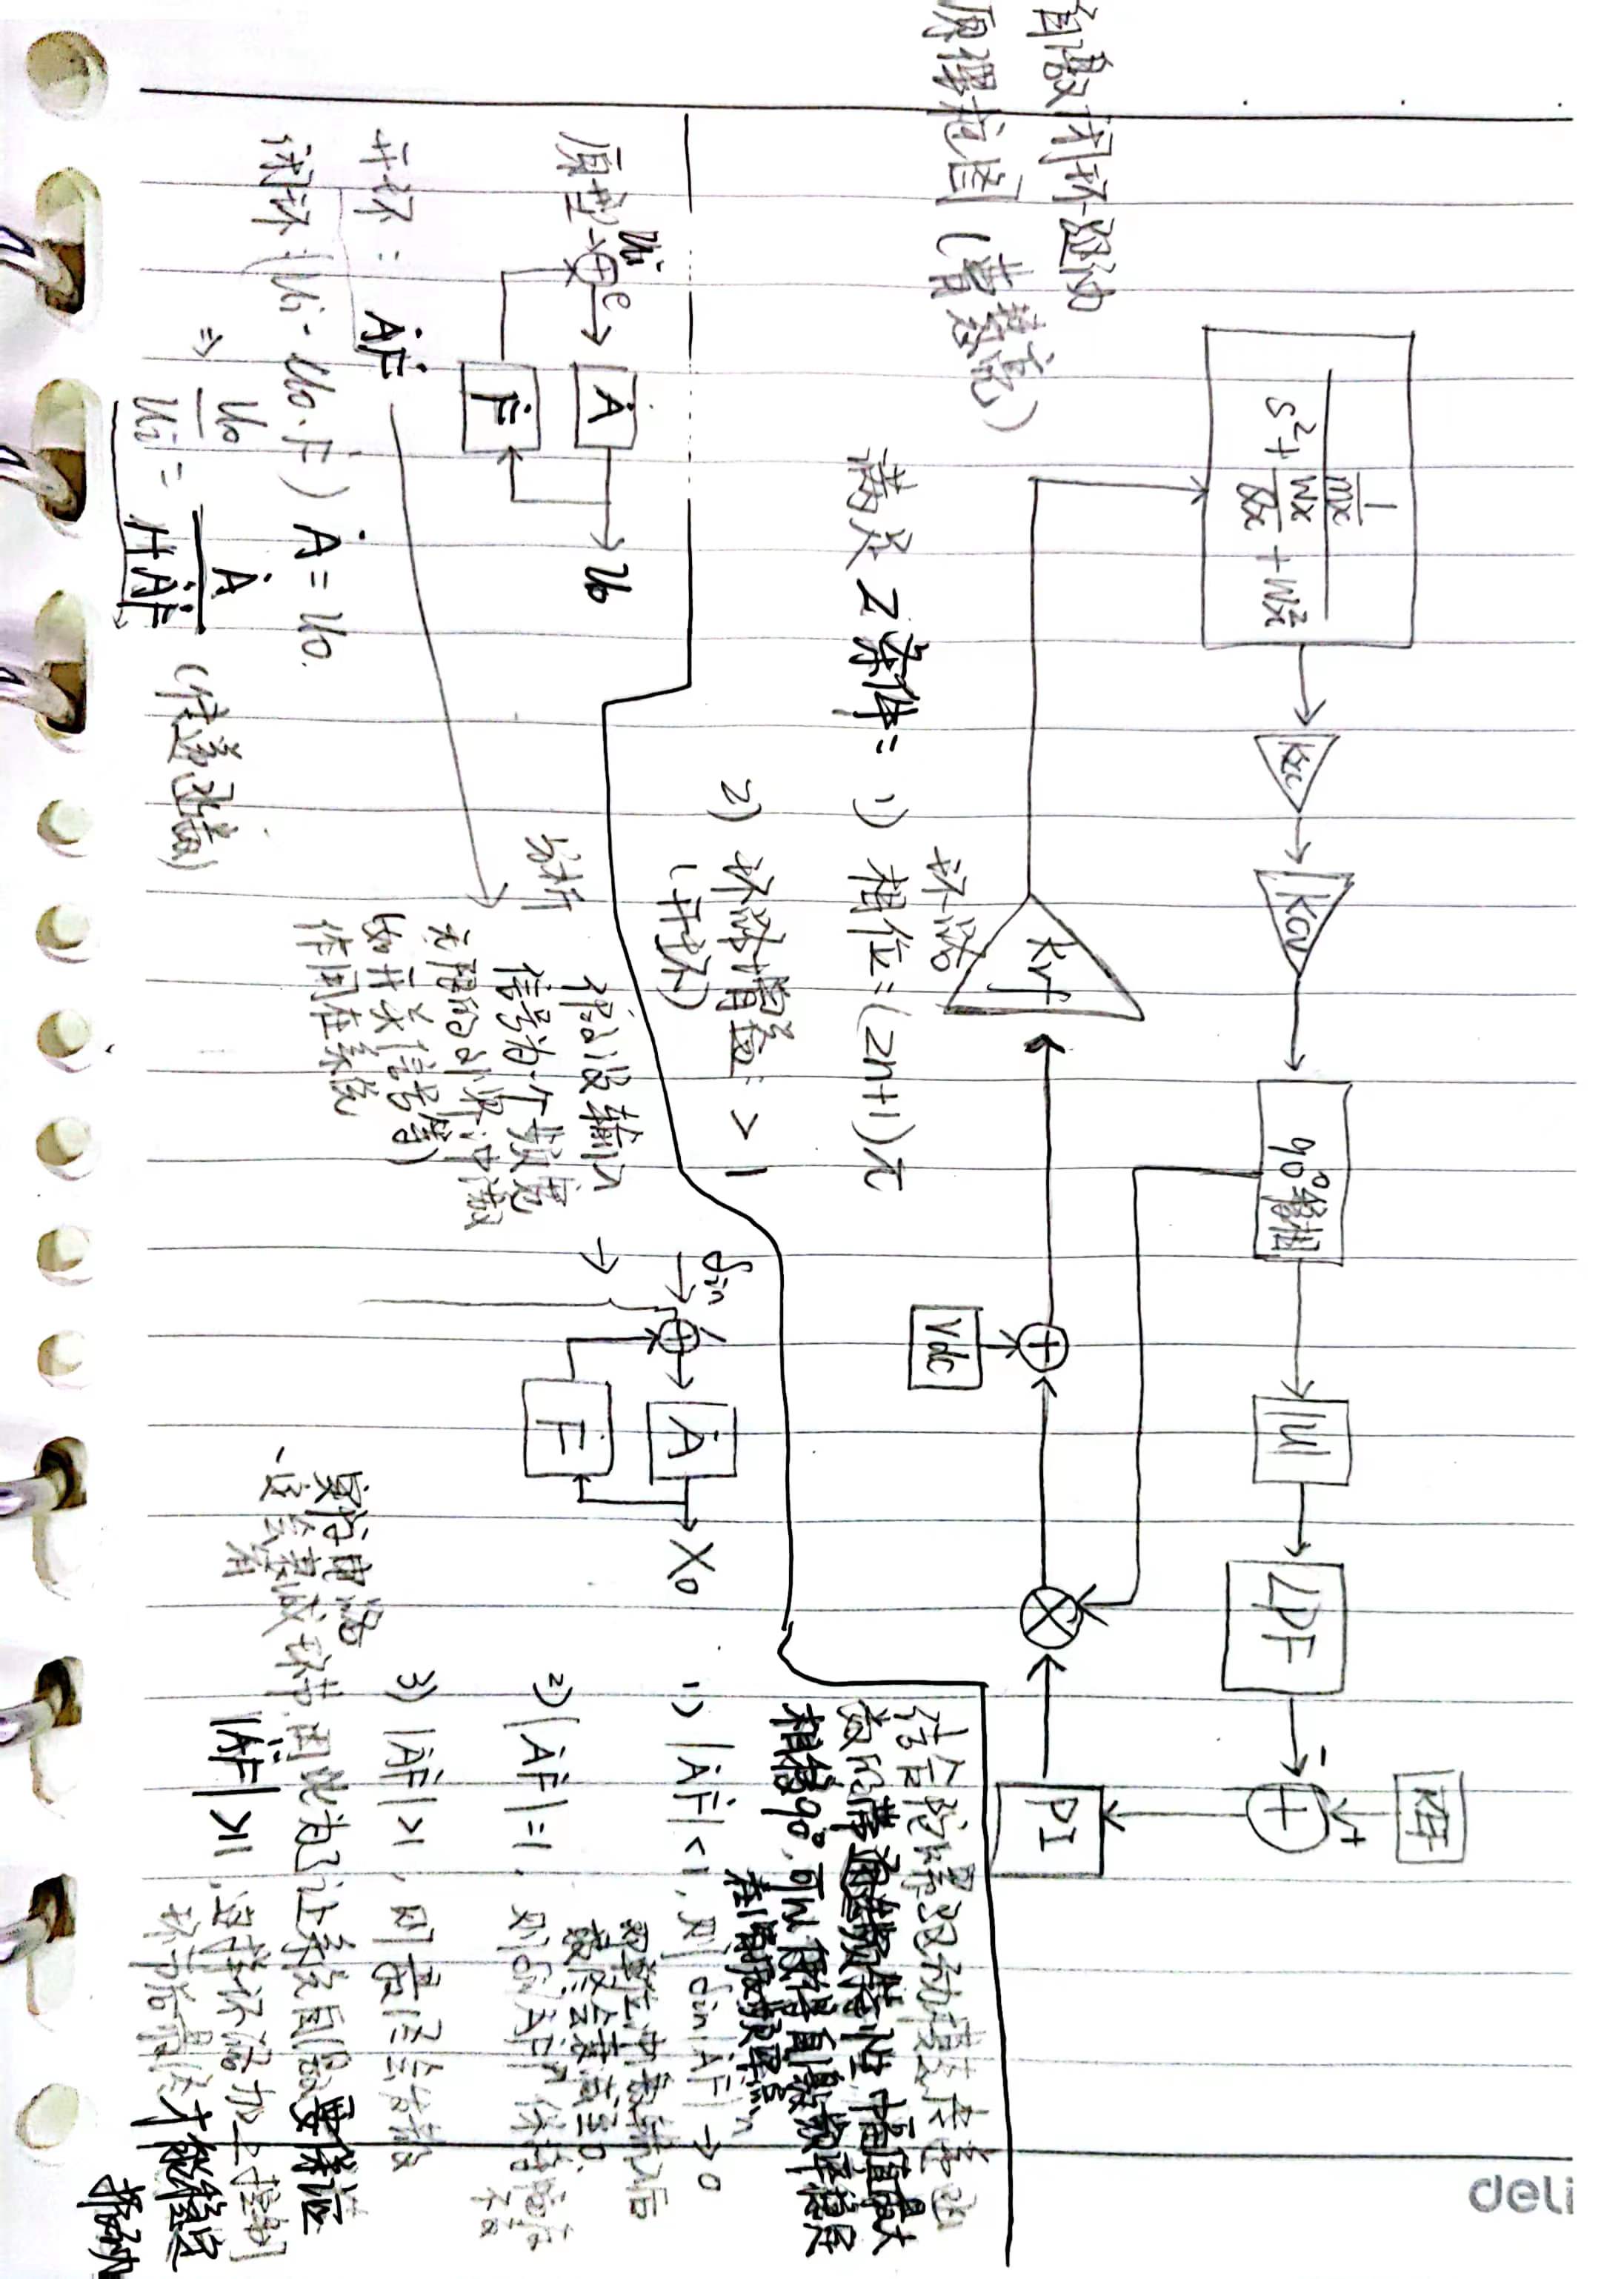 deli
REF
1
mx
s²+ wx/Qx + wx²
Kxc
Kcv
90°移相
|U|
LPF
-
+
+
PI
Krf
+
×
Vdc
自激闭环驱动
原理框图(曹慧亮)
满足2条件: 1) 环路相位:(2n+1)π
2) 环路增益: > 1
(开环)
结合陀螺驱动模态传递函
数的带通选频特性,幅值最大
相移90°,可以使得自激频率稳定
在谐振频率点
原型
Ui
e
Ȧ
Uo
Ḟ
开环: ȦḞ
闭环(Ui-Uo·Ḟ)Ȧ=Uo.
⇒ Uo/Ui = Ȧ/1+ȦḞ (传递函数)
分析
假设输入
信号为一个频宽
无限的外界冲激
(如开关信号等)
作用在系统
δin
Ȧ
Xo
Ḟ
1) |ȦḞ|<1, 则 δin|ȦḞ|ⁿ→0
即单位冲激输入后
最终会衰减至0.
2) |ȦḞ|=1, 则δin|ȦḞ|ⁿ保持幅度
不变
3) |ȦḞ|>1, 则最终会发散
实际电路
一定会有衰减环节,因此为了让系统自激要保证
|ȦḞ|>1,这样环路加上控制
环节后最终才能稳定
振动